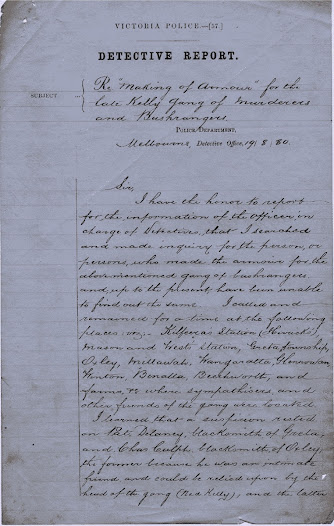 VICTORIA POLICE.—[37.]
DETECTIVE REPORT.
SUBJECT
Re "Making of Armour" for the
late Kelly Gang of Murderers
and Bushrangers
POLICE DEPARTMENT,
Melbourne, Detective Office, 19/8/80.
Sir,
I have the honor to report
for the information of the Officer in
charge of Detectives, that I searched
and made inquiry for the person, or
persons, who made the armour for the
abovementioned gang of bushrangers
and up to the present have been unable
to find out the same I called and
remained for a time at the following
places viz:- Station
Mason and West's Station, Greta township,
Oxley, Millawah, Wangaratta, Glenrowan
Winton, Benalla, Beechworth, and
farms, &c where sympathisers and
other friends of the gang were located
I learned that a suspicion rested
on Pat. Delaney, blacksmith of Greta,
and Chas blacksmith of Oxley,
the former because he was an intimate
friend and could be relied upon by the
head of the gang (Ned Kelly), and the latter